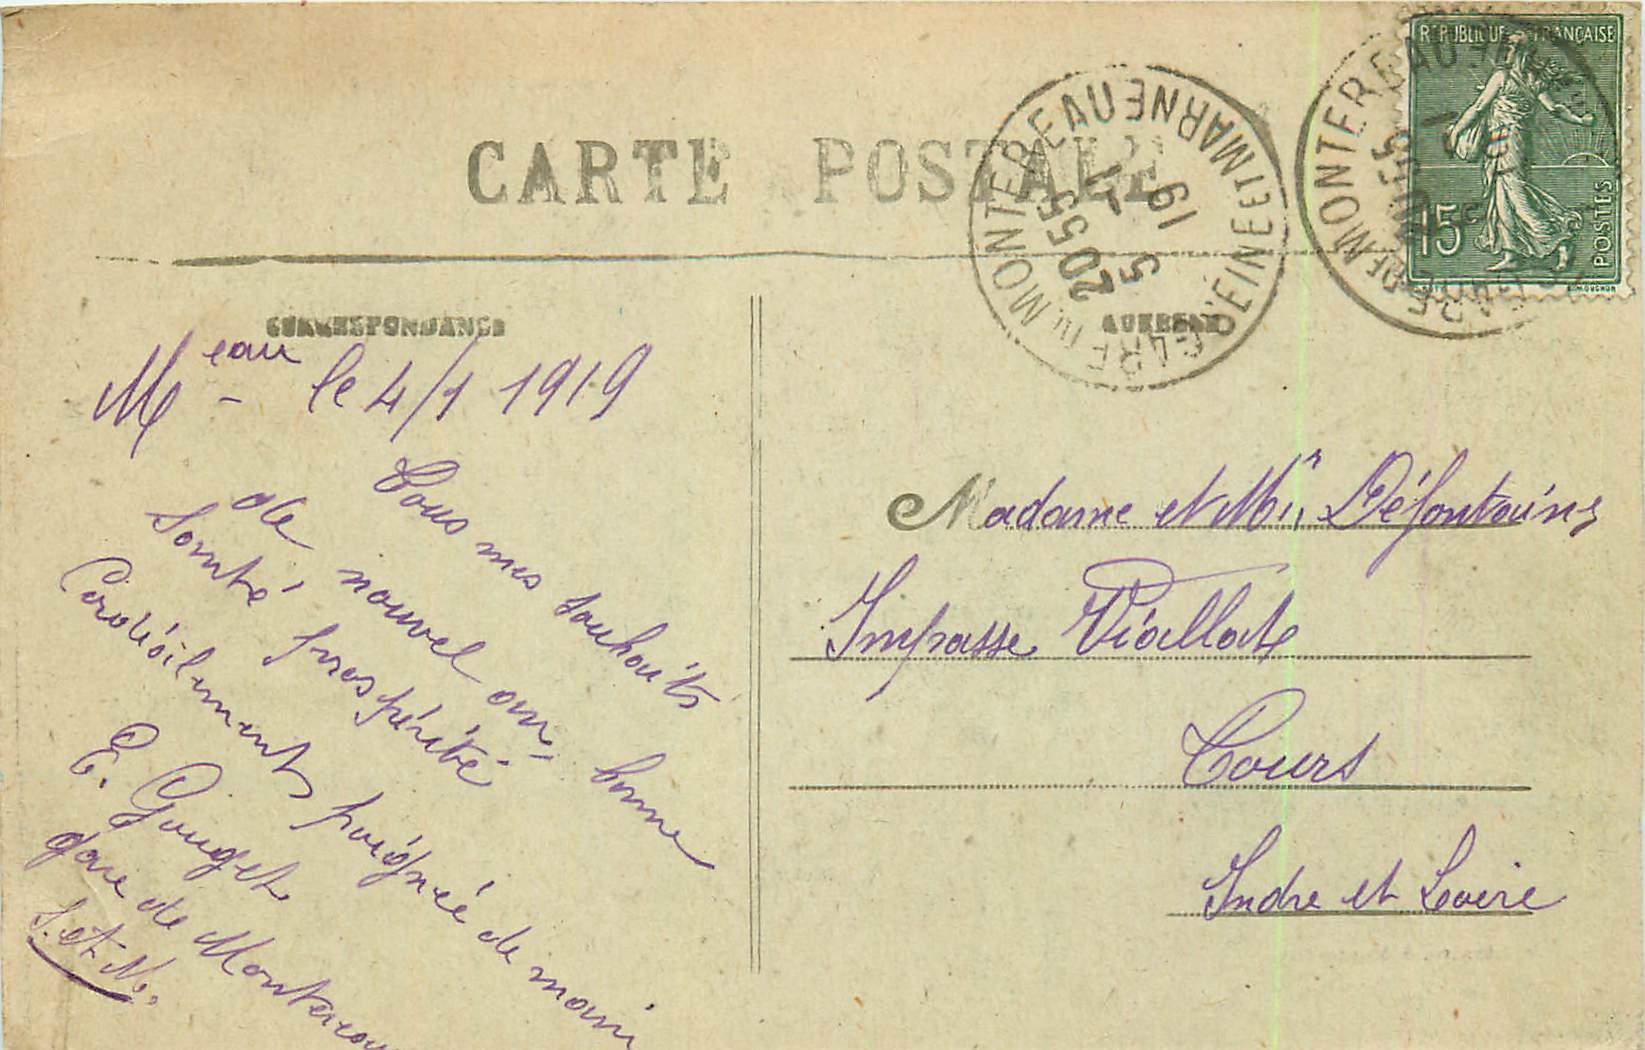 CARTE POSTALE
RÉPUBLIQUE FRANÇAISE
15c
POSTES
GARE DE MONTEREAU SEINE ET MARNE
20 55
5 - 1
19
CORRESPONDANCE
ADRESSE
Meau - le 4/1 1919
Tous mes souhaits
de nouvel an, bonne
Santé prospérité
Cordialement poignée de main
E. Gouget
gare de Montereau
S. et M.
Madame et Mr Défontaines
Impasse Viallat
Tours
Indre et Loire